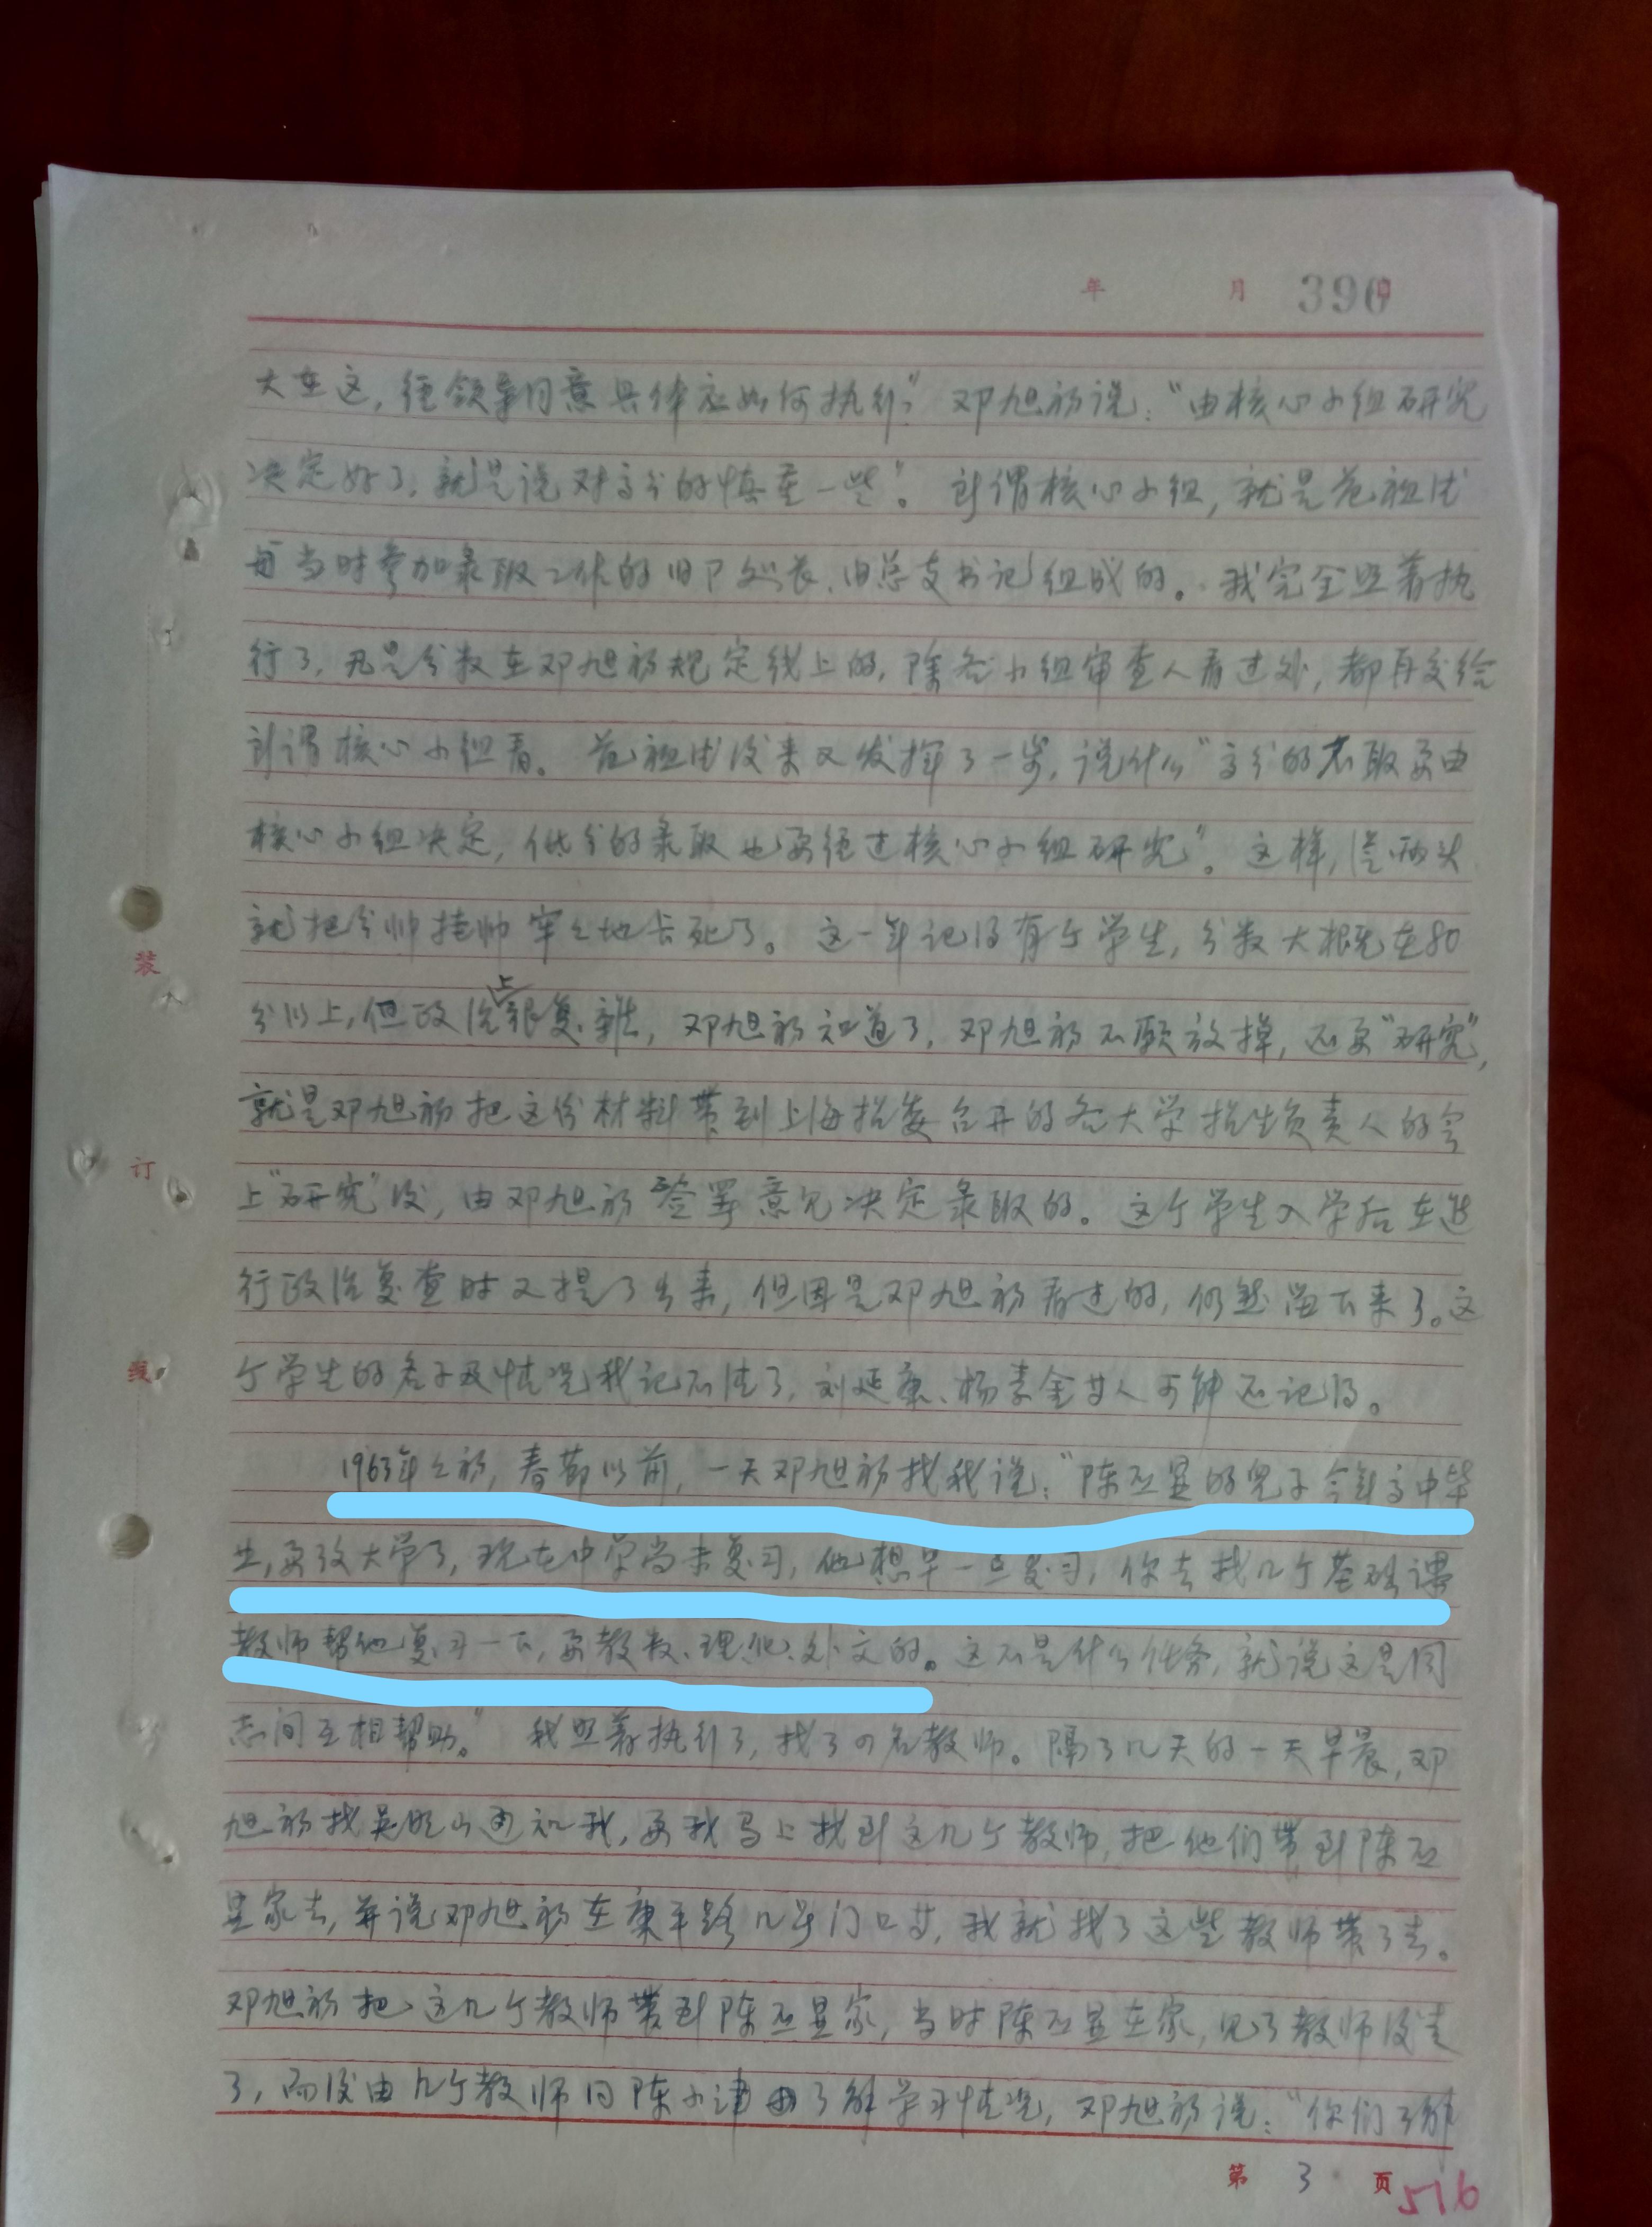 年 月 日 390
大在这,经领导同意具体应如何执行?”邓旭初说:“由核心小组研究
决定好了,就是说对高分的慎重一些”。所谓核心小组,就是范祖德
每当时参加录取工作的旧 由总支书记组成的。我完全照着执
行了,凡是分数在邓旭初规定线上的,除各小组审查人看过外,都再交给
所谓核心小组看。范祖德后来又发挥了一步,说什么“高分的不取要由
核心小组决定,低分的录取也要经过核心小组研究”。这样,从两头
就把分帅挂帅牢牢地卡死了。这一年记得有个学生,分数大概在80
分以上,但政治上很复雜,邓旭初知道了,邓旭初不願放掉,还要“研究”,
就是邓旭初把这份材料带到上海招委召开的各大学招生负责人的会
上“研究”后,由邓旭初签署意见决定录取的。这个学生入学后在进
行政治复查时又提了出来,但因是邓旭初看过的,仍然留下来了。这
个学生的名子及情况我记不清了,刘延康、杨素金等人可能还记得。
1963年之初,春节以前,一天邓旭初找我说:“陈丕显的儿子今年高中毕
业,要考大学了,现在中学尚未复习,他想早一点复习,你去找几个基础课
教师帮他复习一下,要教数、理、化、外文的。这不是什么任务,就说这是同
志间互相帮助。”我照着执行了,找了四名教师。隔了几天的一天早晨,邓
旭初找吴 通知我,要我马上找到这几个教师,把他们带到陈丕
显家去,并说邓旭初在康平路几号门口等,我就找了这些教师带了去。
邓旭初把这几个教师带到陈丕显家,当时陈丕显在家,见了教师后走
了,而后由几个教师同陈小津 了解学习情况,邓旭初说:“你们了解
装
订
线
第 3 页 516